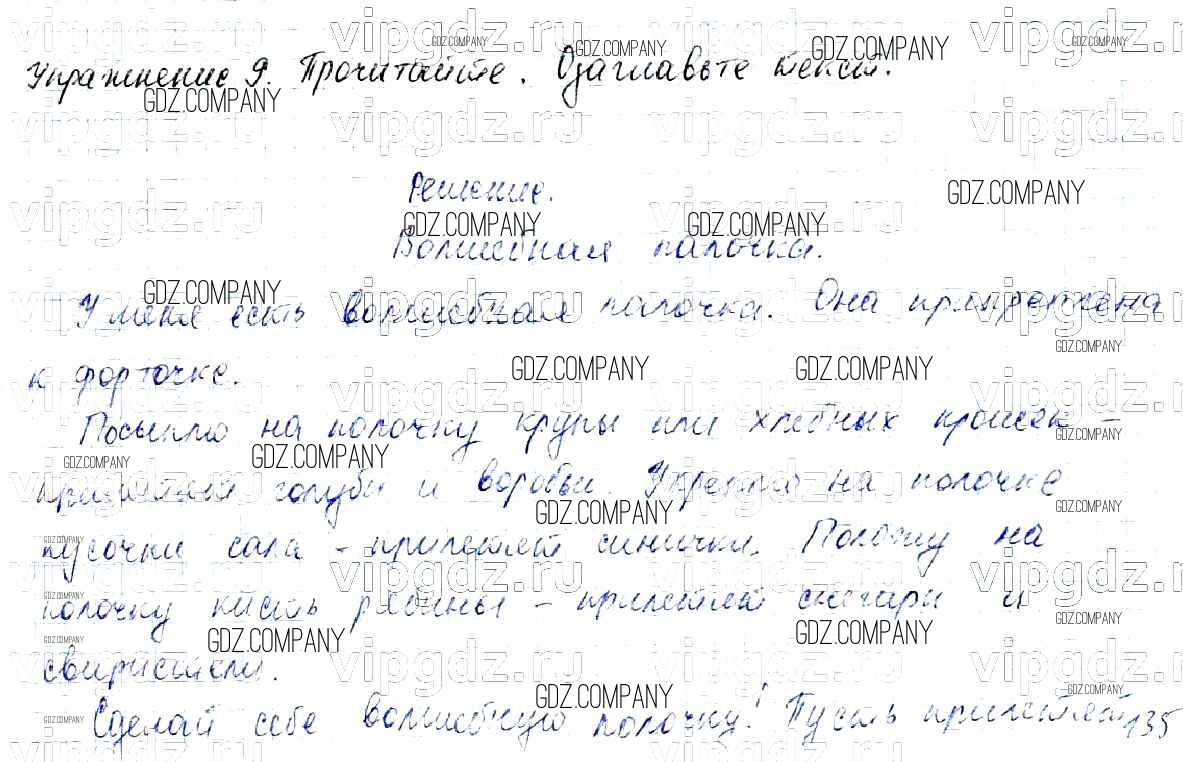 Упражнение 9. Прочитайте. Озаглавьте текст.
Решение.
Волшебная полочка.
У меня есть волшебная полочка. Она прикреплена
к форточке.
Посыплю на полочку крупы или хлебных крошек –
прилетят голуби и воробьи. Укреплю на полочке
кусочки сала – прилетят синички. Положу на
полочку кисть рябины – прилетят снегири и
свиристели.
Сделай себе волшебную полочку! Пусть прилетят
135
vipgdz.ru
GDZ.COMPANY